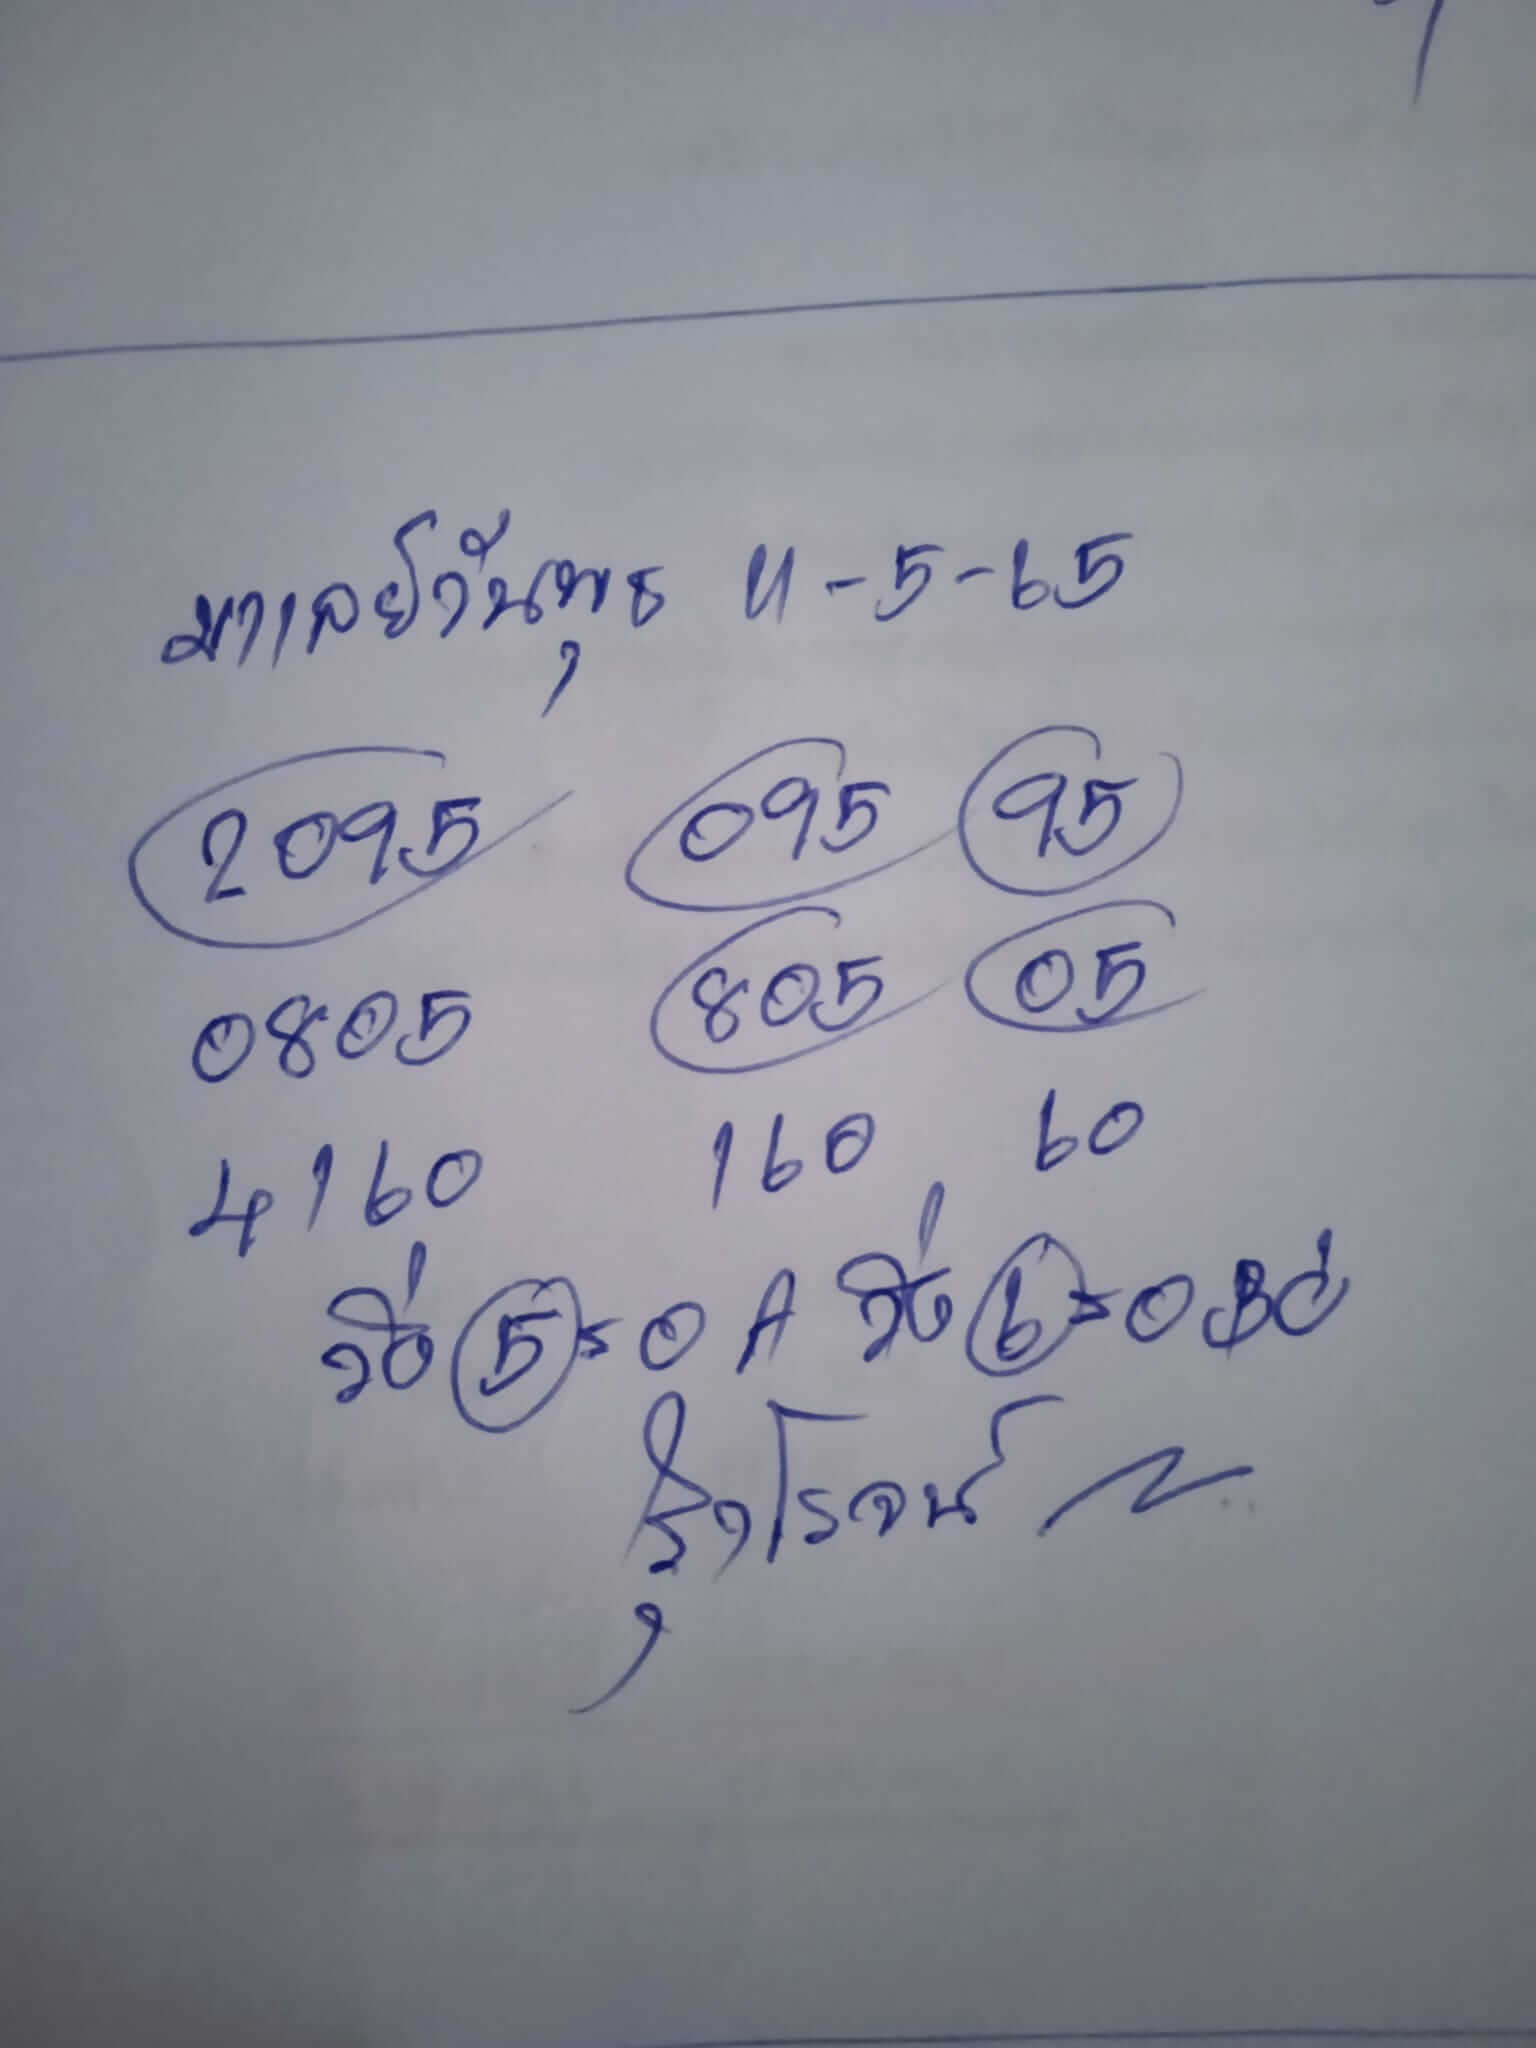 มาเลย์วันพุธ 11-5-65
2095 095 95
0805 805 05
4160 160 60
วิ่ง 5=0 A วิ่ง 6=0 BC
โรจน์